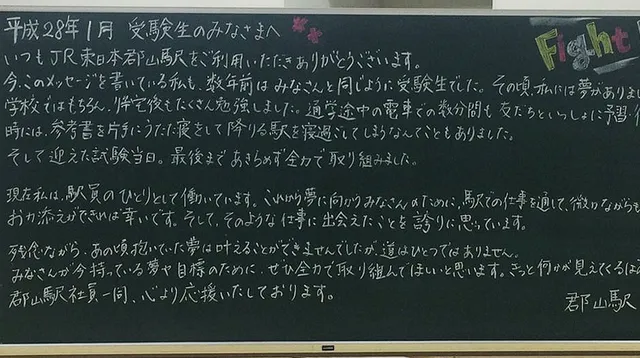 平成28年1月 受験生のみなさまへ
Fight
いつもJR東日本郡山駅をご利用いただきありがとうございます。
今、このメッセージを書いている私も、数年前はみなさんと同じように受験生でした。その頃、私には夢がありまし
学校ではもちろん、帰宅後もたくさん勉強しました。通学途中の電車での数分間も友だちといっしょに予習・
時には、参考書を片手にうたた寝をして降りる駅を寝過ごしてしまうなんてこともありました。
そして迎えた試験当日。最後まであきらめず全力で取り組みました。
現在私は、駅員のひとりとして働いています。これから夢に向かうみなさんのために、駅での仕事を通して、微力ながらも
お力添えができれば幸いです。そして、そのような仕事に出会えたことを誇りに思っています。
残念ながら、あの頃抱いていた夢は叶えることができませんでしたが、道はひとつではありません。
みなさんが今持っている夢や目標のために、ぜひ全力で取り組んでほしいと思います。きっと何かが見えてくるは
郡山駅社員一同、心より応援いたしております。
郡山駅